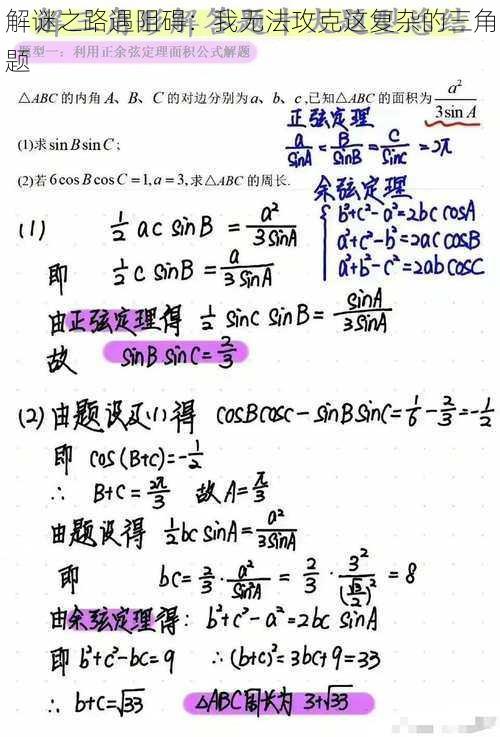 解谜之路遇阻碍：我无法攻克这复杂的三角题
题型一：利用正余弦定理面积公式解题
△ABC 的内角 A、B、C 的对边分别为 a、b、c ,已知△ABC 的面积为 a²/3sin A
(1)求 sin B sin C ;
(2)若 6 cos B cos C = 1, a = 3, 求△ABC 的周长.
正弦定理
a/sinA = B/sinB = C/sinC = 2π
余弦定理
b²+c²-a²=2bc cosA
a²+c²-b²=2ac cosB
a²+b²-c²=2ab cosC
(1) ½ ac sinB = a²/3sinA
即 ½ c sinB = a/3sinA
由正弦定理得 ½ sinC sinB = sinA/3sinA
故 sinB sinC = 2/3
(2) 由题设及(1)得 cosBcosC - sinBsinC = 1/6 - 2/3 = -1/2
即 cos(B+C) = -1/2
∴ B+C = 2π/3 故 A = π/3
由题设得 ½ bc sinA = a²/3sinA
即 bc = 2/3 · a²/sin²A = 2/3 · 3²/(√3/2)² = 8
由余弦定理得: b²+c²-a²=2bc sinA
即 b²+c²-bc=9 ∴(b+c)²=3bc+9=33
∴ b+c=√33 △ABC周长为 3+√33